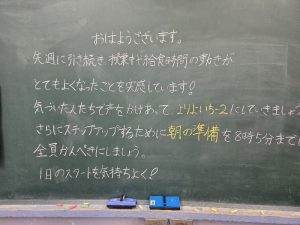 おはようございます。
先週に引き続き、授業や給食時間の動きが
とてもよくなったことを実感しています!
気づいた人たちで声をかけあって、よりよい5-2にしていきましょう
さらにステップアップするために朝の準備を8時5分までに
全員かんぺきにしましょう。
1日のスタートを気持ちよく!